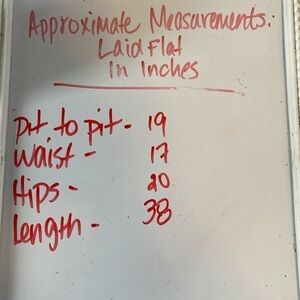 Approximate Measurements:
Laid Flat
In Inches
Pit to pit - 19
Waist - 17
Hips - 20
Length - 38